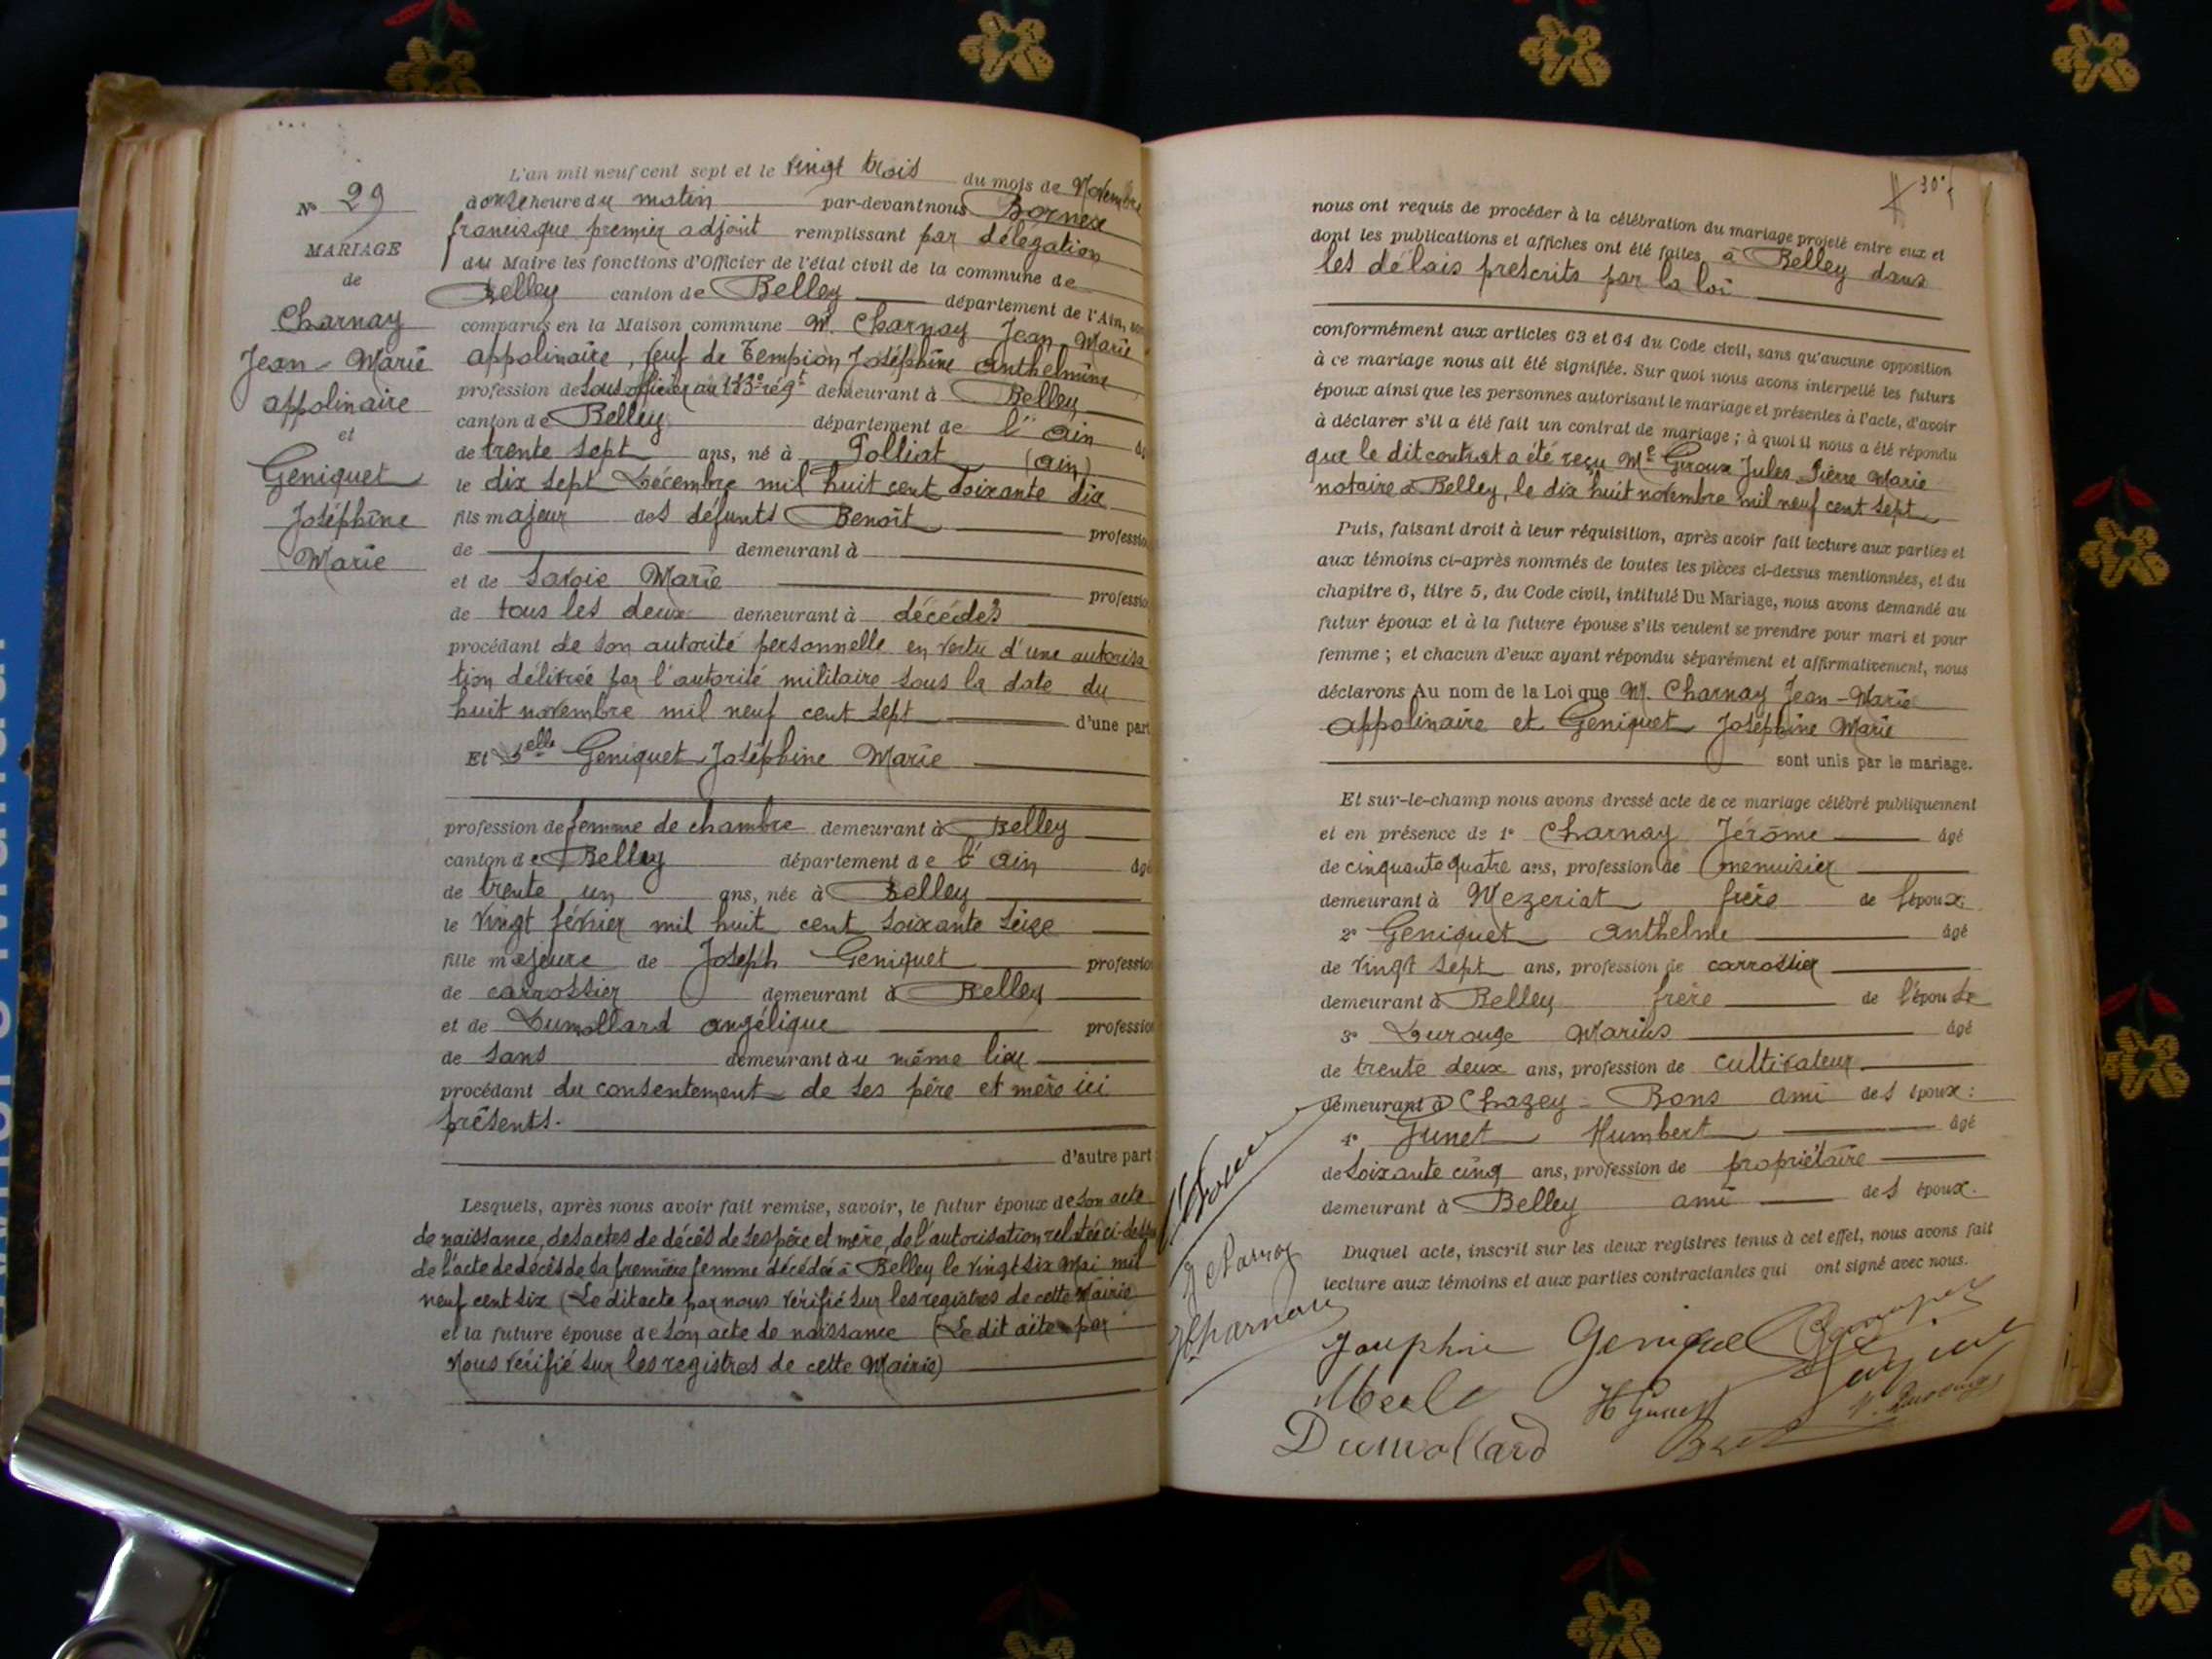 N° 29
MARIAGE
de
Charnay
Jean-Marie
Appolinaire
et
Geniquet
Joséphine
Marie
L'an mil neuf cent sept et le vingt trois du mois de Novembre
à onze heure du matin par-devant nous Bornex
francisque premier adjoint remplissant par délégation
du Maire les fonctions d'Officier de l'état civil de la commune de
Belley canton de Belley département de l'Ain, sont
comparus en la Maison commune M. Charnay Jean-Marie
Appolinaire, veuf de Tempion Joséphine Anthelmine
profession de Sous officier au 133e régt demeurant à Belley
canton de Belley département de l'Ain âgé
de trente sept ans, né à Polliat (Ain)
le dix sept Décembre mil huit cent soixante dix
fils majeur des défunts Benoît profession
de demeurant à
et de Savoie Marie profession
de tous les deux demeurant à décédés
procédant de son autorité personnelle en vertu d'une autorisa
tion délivrée par l'autorité militaire sous la date du
huit novembre mil neuf cent sept d'une part
Et Delle Geniquet Joséphine Marie
profession de femme de chambre demeurant à Belley
canton de Belley département de l'Ain âgé
de trente un ans, née à Belley
le vingt février mil huit cent soixante seize
fille majeure de Joseph Geniquet profession
de carrossier demeurant à Belley
et de Dumollard Angélique profession
de sans demeurant au même lieu
procédant du consentement de ses père et mère ici
présents.
d'autre part
Lesquels, après nous avoir fait remise, savoir, le futur époux de son acte
de naissance, des actes de décès de ses père et mère, de l'autorisation relatée ci-dessus
de l'acte de décès de sa première femme décédée à Belley le vingt six Mai mil
neuf cent six (Le dit acte par nous vérifié sur les registres de cette Mairie)
et la future épouse de son acte de naissance (Le dit acte par
Nous vérifié sur les registres de cette Mairie)
30
nous ont requis de procéder à la célébration du mariage projeté entre eux et
dont les publications et affiches ont été faites à Belley dans
les délais prescrits par la loi
conformément aux articles 63 et 64 du Code civil, sans qu'aucune opposition
à ce mariage nous ait été signifiée. Sur quoi nous avons interpellé les futurs
époux ainsi que les personnes autorisant le mariage et présentes à l'acte, d'avoir
à déclarer s'il a été fait un contrat de mariage ; à quoi il nous a été répondu
que le dit contrat a été reçu Me Giroux Jules Pierre Marie
notaire à Belley, le dix huit novembre mil neuf cent sept
Puis, faisant droit à leur réquisition, après avoir fait lecture aux parties et
aux témoins ci-après nommés de toutes les pièces ci-dessus mentionnées, et du
chapitre 6, titre 5, du Code civil, intitulé Du Mariage, nous avons demandé au
futur époux et à la future épouse s'ils veulent se prendre pour mari et pour
femme ; et chacun d'eux ayant répondu séparément et affirmativement, nous
déclarons Au nom de la Loi que M. Charnay Jean-Marie
Appolinaire et Geniquet Joséphine Marie
sont unis par le mariage.
Et sur-le-champ nous avons dressé acte de ce mariage célébré publiquement
et en présence de 1° Charnay Jérôme âgé
de cinquante quatre ans, profession de menuisier
demeurant à Mezeriat frère de l'époux
2° Geniquet Anthelme âgé
de vingt sept ans, profession de carrossier
demeurant à Belley frère de l'épouse
3° Durouge Marius âgé
de trente deux ans, profession de cultivateur
demeurant à Chazey-Bons ami des époux :
4° Junet Humbert âgé
de soixante cinq ans, profession de propriétaire
demeurant à Belley ami des époux.
Duquel acte, inscrit sur les deux registres tenus à cet effet, nous avons fait
lecture aux témoins et aux parties contractantes qui ont signé avec nous.
Charnay
Josephine Geniquet
Merle
H Junet
Dumollard